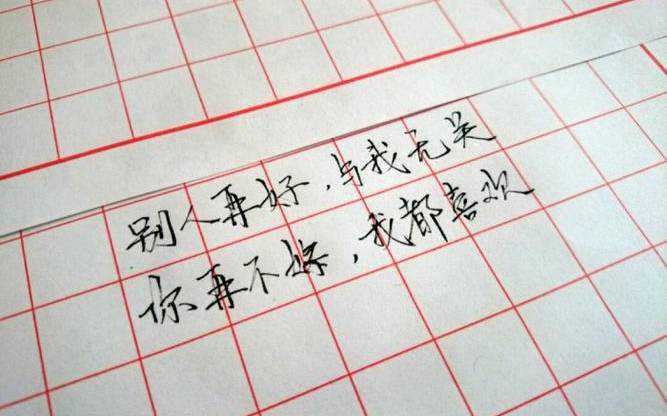 别人再好，与我无关
你再不好，我都喜欢